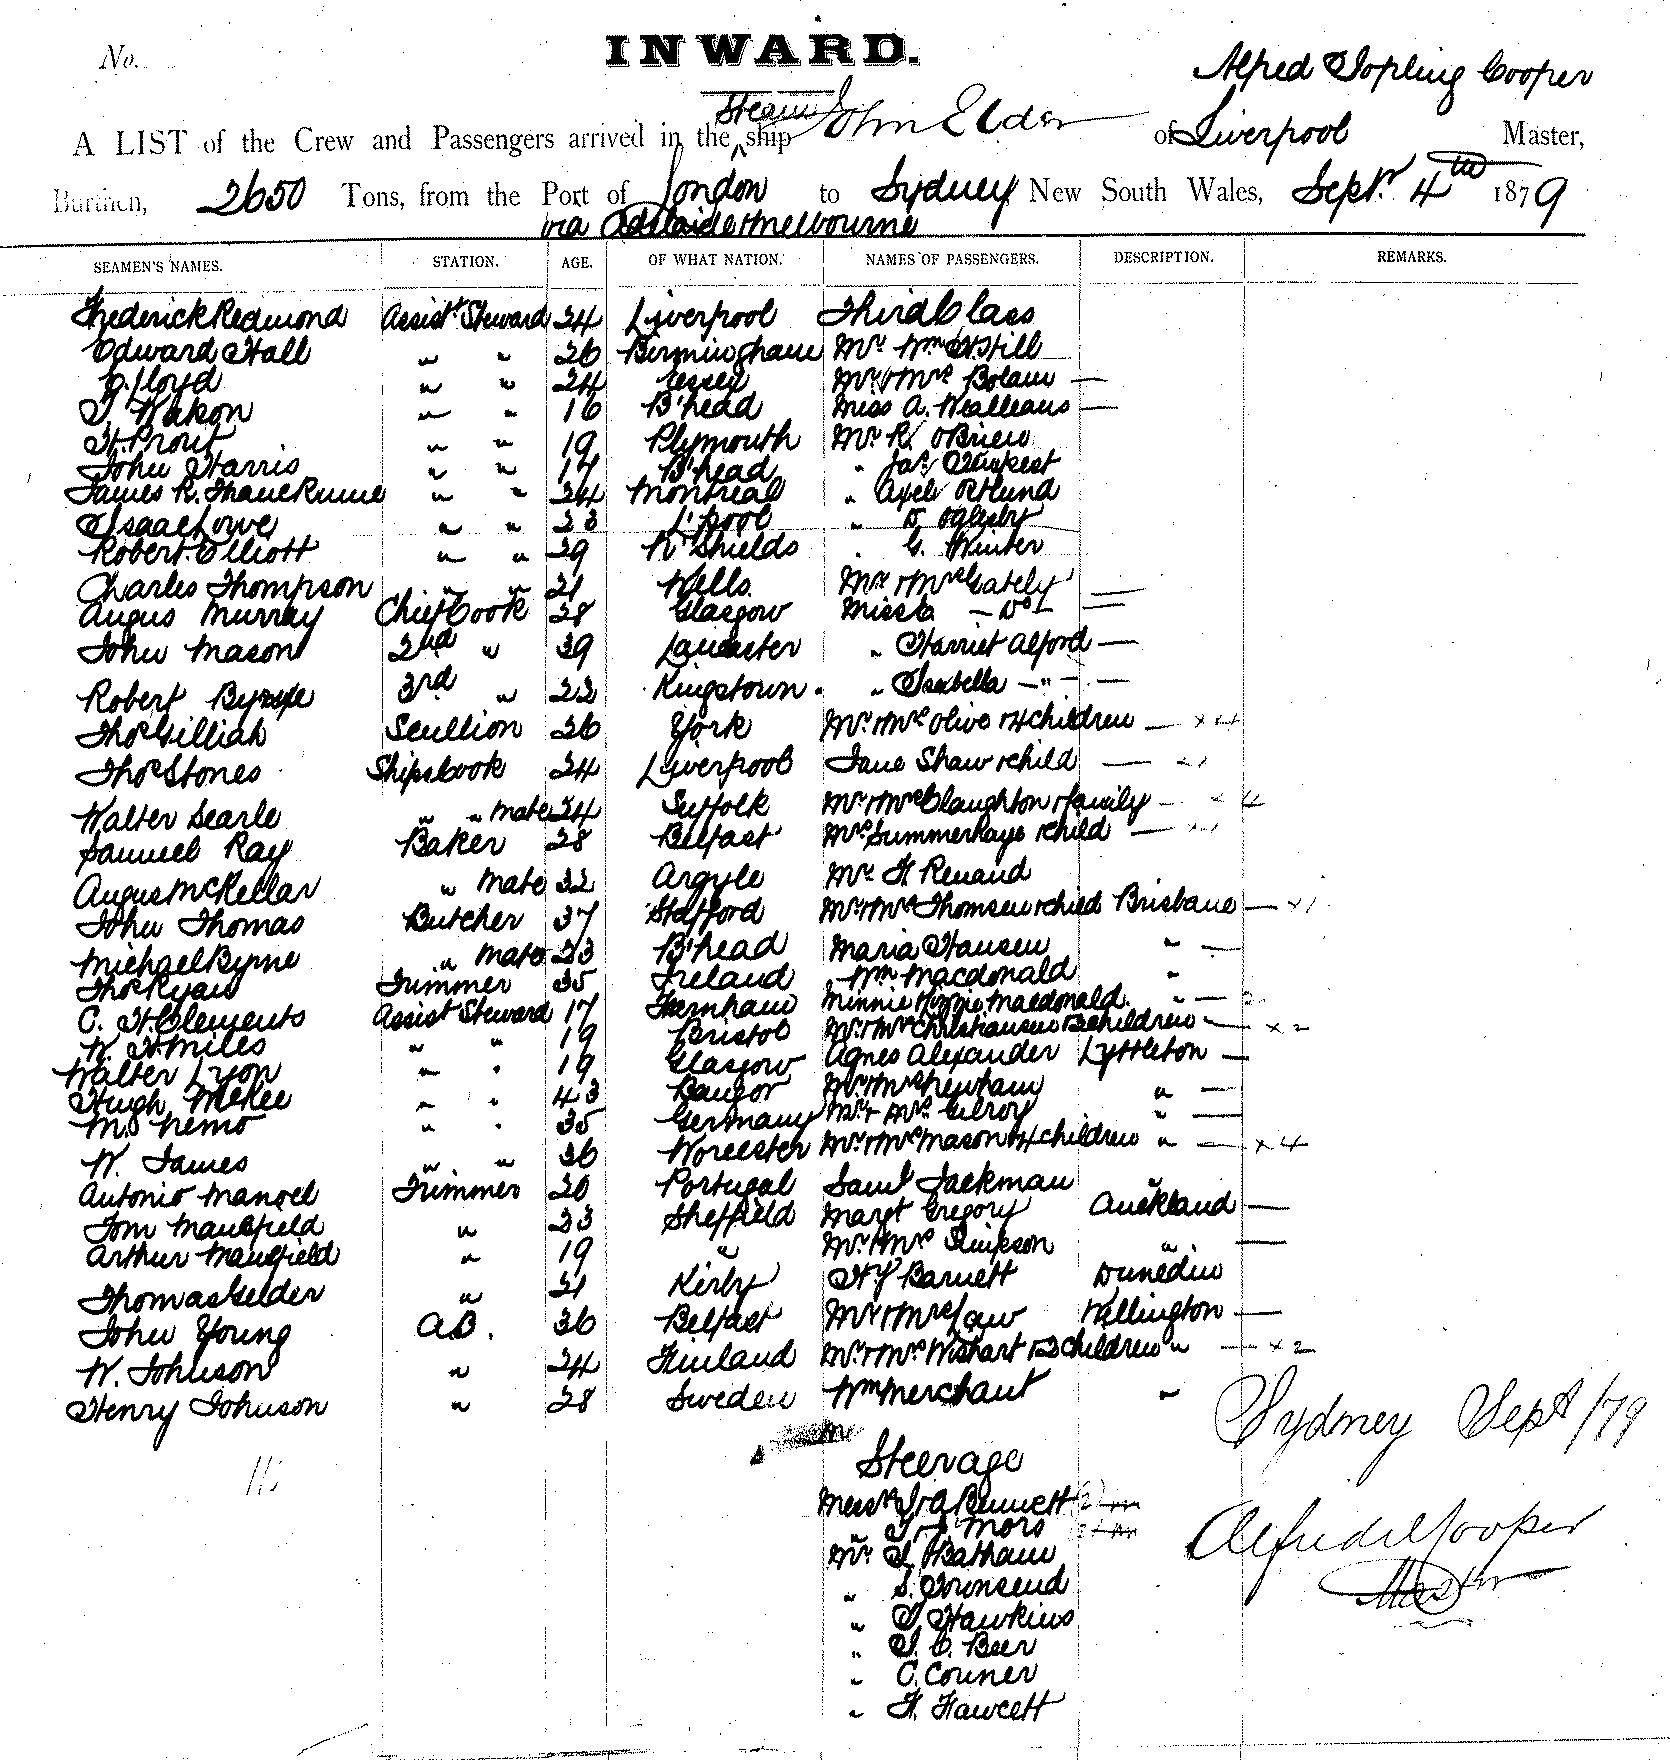 No.
INWARD.
Alfred Topling Cooper
A LIST of the Crew and Passengers arrived in the Steam ship John Elder of Liverpool Master,
Burthen, 2650 Tons, from the Port of London to Sydney New South Wales, Sept. 4th 1879
via Adelaide & Melbourne
SEAMEN'S NAMES. STATION. AGE. OF WHAT NATION. NAMES OF PASSENGERS. DESCRIPTION. REMARKS.
Frederick Redmond Assist Steward 24 Liverpool Third Class
Edward Hall " " 26 Birmingham Mr Wm Still
Lloyd " " 24 Mr & Mrs Bolam —
" " 16 B'head Miss A. —
H. Prout " " 19 Plymouth Mr R. O'Brien
John Harris " " 17 B'head " Jas
James R. " " 24 Montreal " Axel
Isaac Lowe " " 23 L'pool " D. Oglesby
Robert Elliott " " 29 N. Shields " G. Winter
Charles Thompson " " 21 Wells. Mr & Mrs Gately —
Angus Murray Chief Cook 28 Glasgow Miss — Do — —
John Mason 2nd " 39 Lancaster " Harriet Alford —
Robert Byrne 3rd " 22 Kingstown. " Isabella — " — —
Thos Gilliah Scullion 26 York Mr & Mrs Olive & 4 children — x 4
Thos Stones Ships Cook 24 Liverpool Jane Shaw & child — x 1
Walter Searle " " Mate 24 Suffolk Mr & Mrs Claughton & family — x 4
Samuel Ray Baker 28 Belfast Mrs Summerhays & child — x 1
Angus McKellar " Mate 32 Argyle Mr H Renaud
John Thomas Butcher 37 Stafford Mr & Mrs Thomsen & child Brisbane — x 1
Michael Byrne " Mate 23 B'head Maria Hansen " —
Thos Ryan Trimmer 35 Ireland Wm Macdonald "
C. H. Clements Assist Steward 17 Farnham Minnie & Lizzie Macdonald. " — 2
W. H. Miles " " 19 Bristol Mr & Mrs Christiansen & 2 children " — x 2
Walter Lyon " " 19 Glasgow Agnes Alexander Lyttleton —
Hugh McKee " " 43 Bangor Mr & Mrs Newham " —
M. Nemo " " 35 Germany Mr & Mrs Gilroy " —
W. James " " 36 Worcester Mr & Mrs Mason & 4 children " — x 4
Antonio Manoel Trimmer 20 Portugal Saml Jackman "
Tom Mansfield " 23 Sheffield Margt Gregory Auckland —
Arthur Mansfield " 19 " Mr & Mrs Simpson " —
Thomas Gelder " 21 Kirby Barnett Dunedin
John Young A.B. 36 Belfast Mr & Mrs Law Wellington —
W. Johnson " 24 Finland Mr & Mrs Wishart & 2 children " — x 2
Henry Johnson " 28 Sweden Wm Merchant "
Sydney Sept /79
Steerage
Messrs J & A Bennett
" Mors
Alfred T Cooper
Master
Mr Batham
" S. Townsend
" T. Hawkins
" Beer
" C. Conner
" H. Fawcett